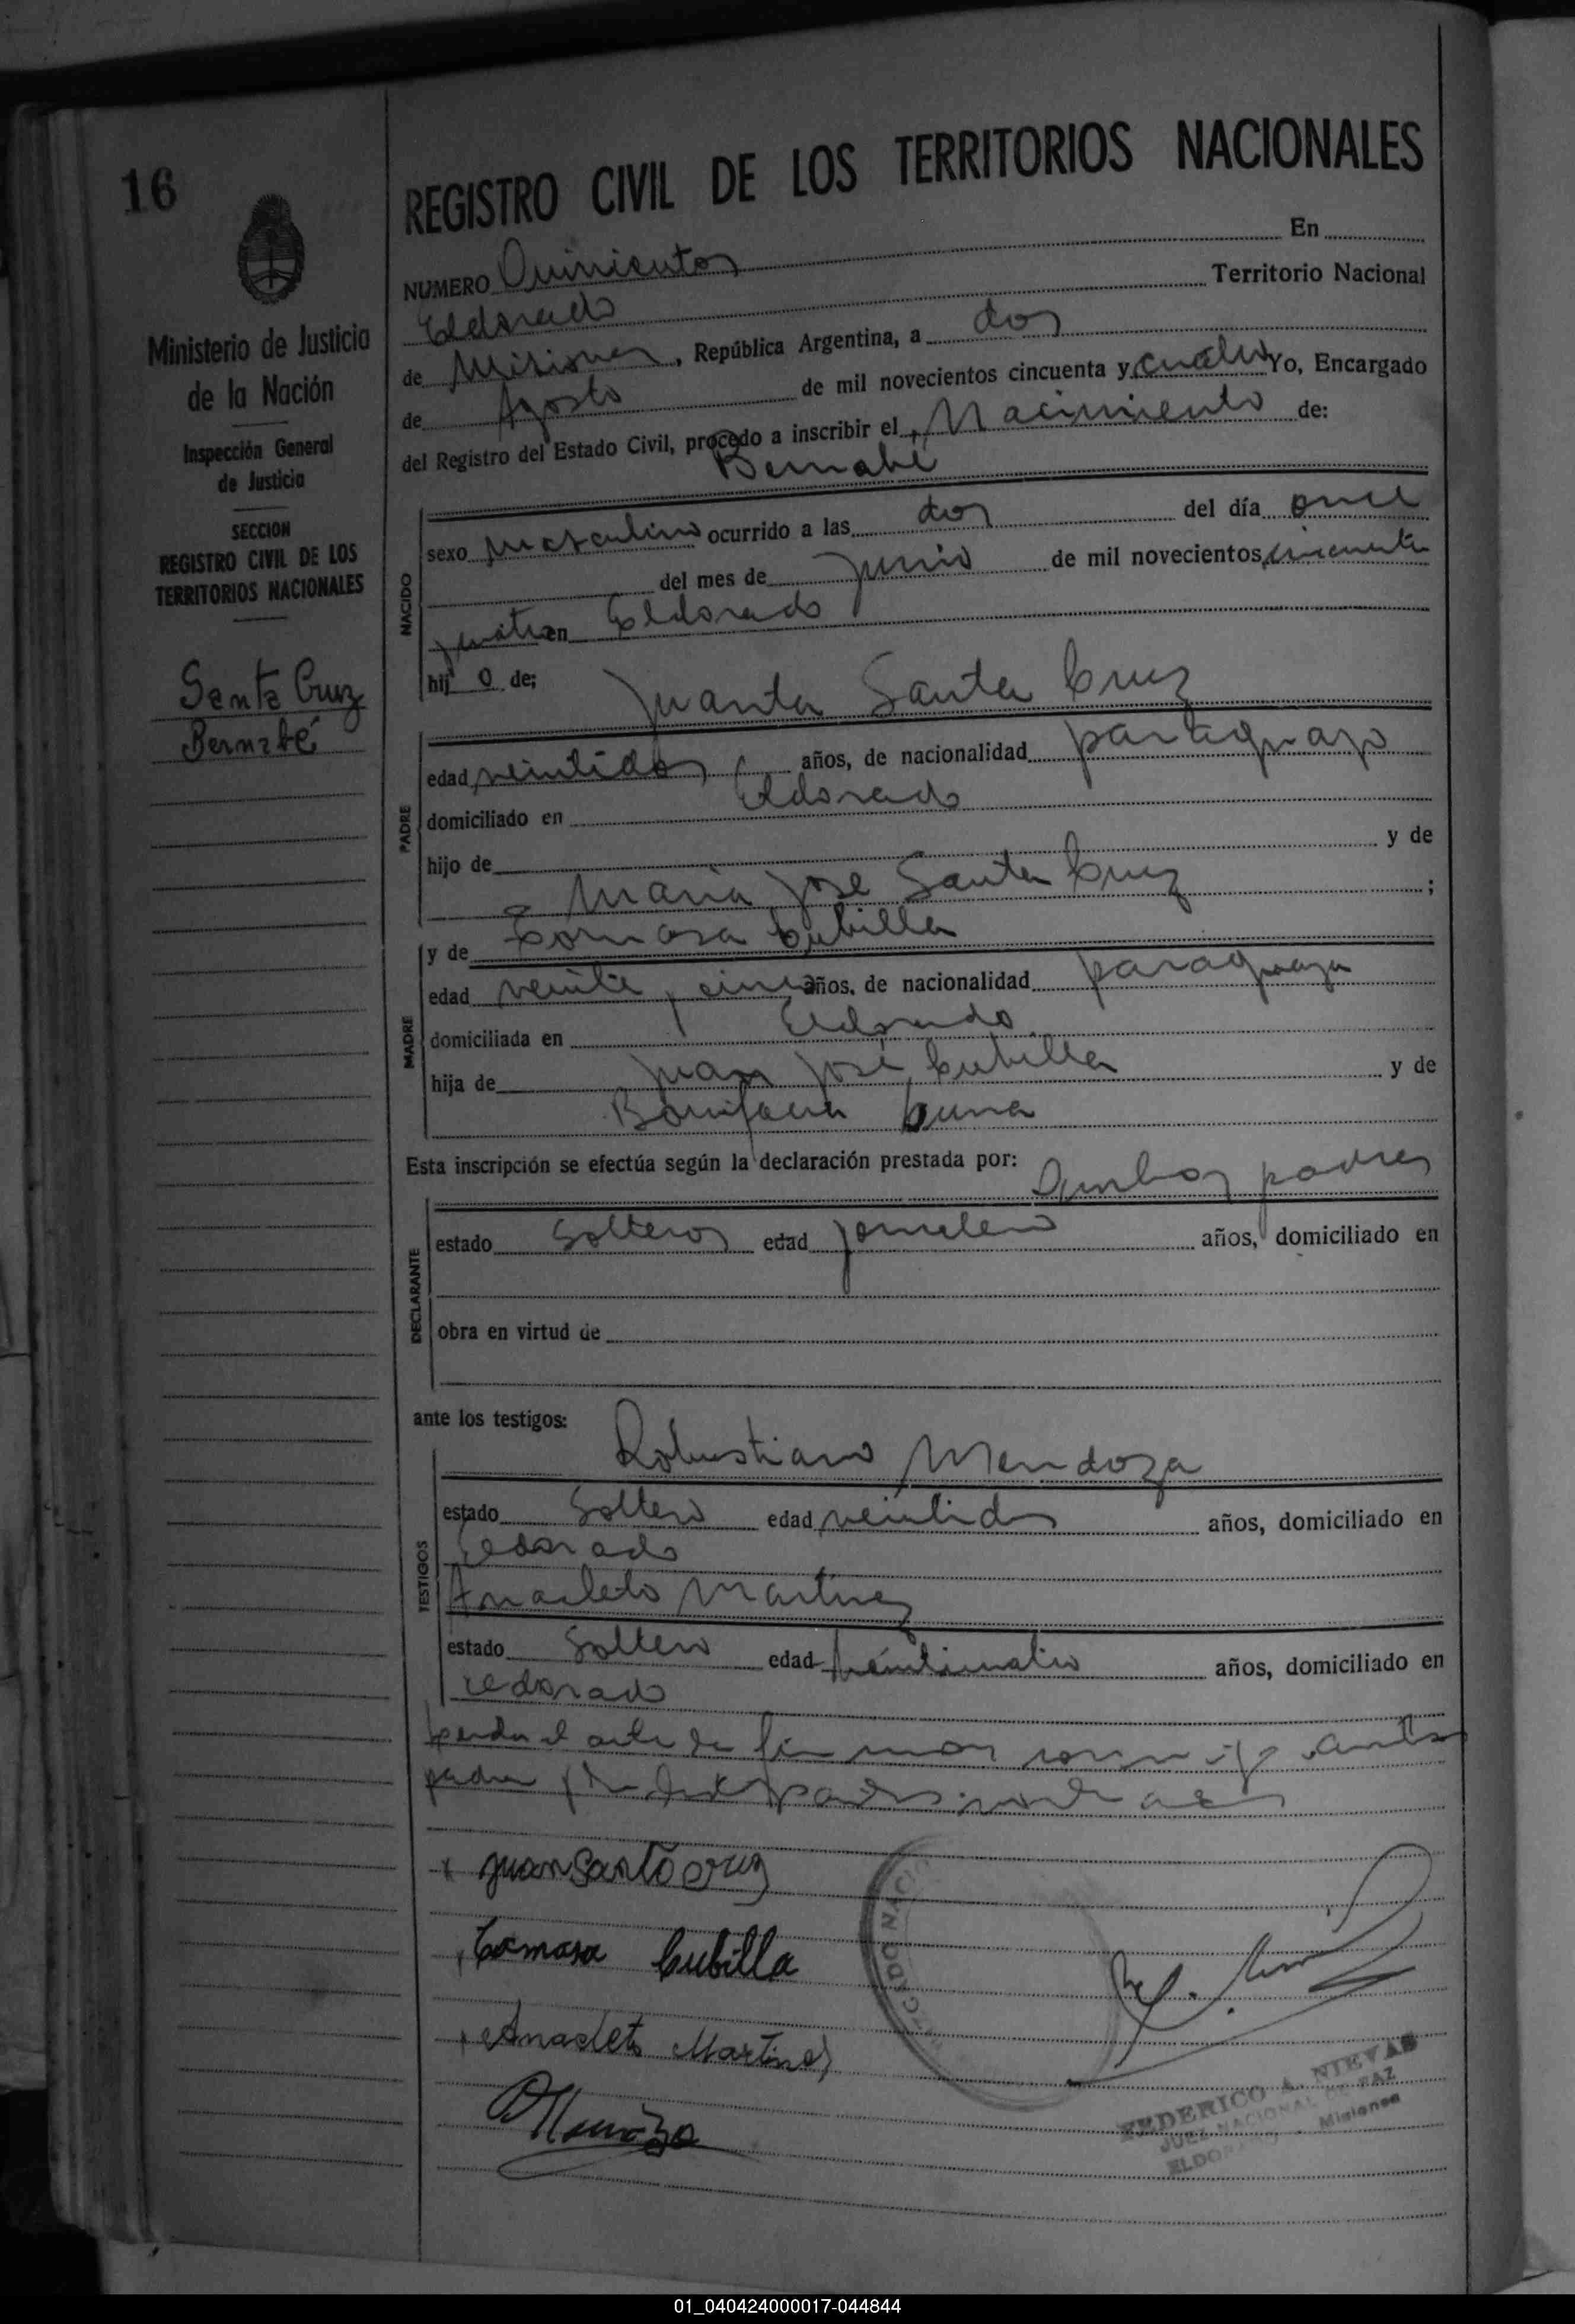 16
REGISTRO CIVIL DE LOS TERRITORIOS NACIONALES
Ministerio de Justicia
de la Nación
Inspección General
de Justicia
SECCION
REGISTRO CIVIL DE LOS
TERRITORIOS NACIONALES
Santa Cruz
Bernabé
NUMERO Quinientos En
Eldorado Territorio Nacional
de Misiones, República Argentina, a dos
de Agosto de mil novecientos cincuenta y cuatro Yo, Encargado
del Registro del Estado Civil, procedo a inscribir el Nacimiento de:
Bernabé
NACIDO
sexo masculino ocurrido a las dos del día once
del mes de junio de mil novecientos cincuenta
y cuatro en Eldorado
hij o de; Juan Santa Cruz
PADRE
edad veintidos años, de nacionalidad paraguayo
domiciliado en Eldorado
hijo de y de
María José Santa Cruz ;
MADRE
y de Tomasa Cubilla
edad veinte y cinco años, de nacionalidad paraguaya
domiciliada en Eldorado
hija de Juan José Cubilla y de
Bonifacia
Esta inscripción se efectúa según la declaración prestada por:
Ambos padres
DECLARANTE
estado Solteros edad jornalero años, domiciliado en
obra en virtud de
ante los testigos:
Robustiano Mendoza
TESTIGOS
estado Soltero edad veintidos años, domiciliado en
Eldorado
Anacleto Martinez
estado Soltero edad veinticuatro años, domiciliado en
Eldorado
el acta la
padres
x juan santo cruz
Tomasa Cubilla
Anacleto Martinez
FEDERICO A. NIEVAS
JUEZ NACIONAL DE PAZ
ELDORADO - Misiones
01_040424000017-044844